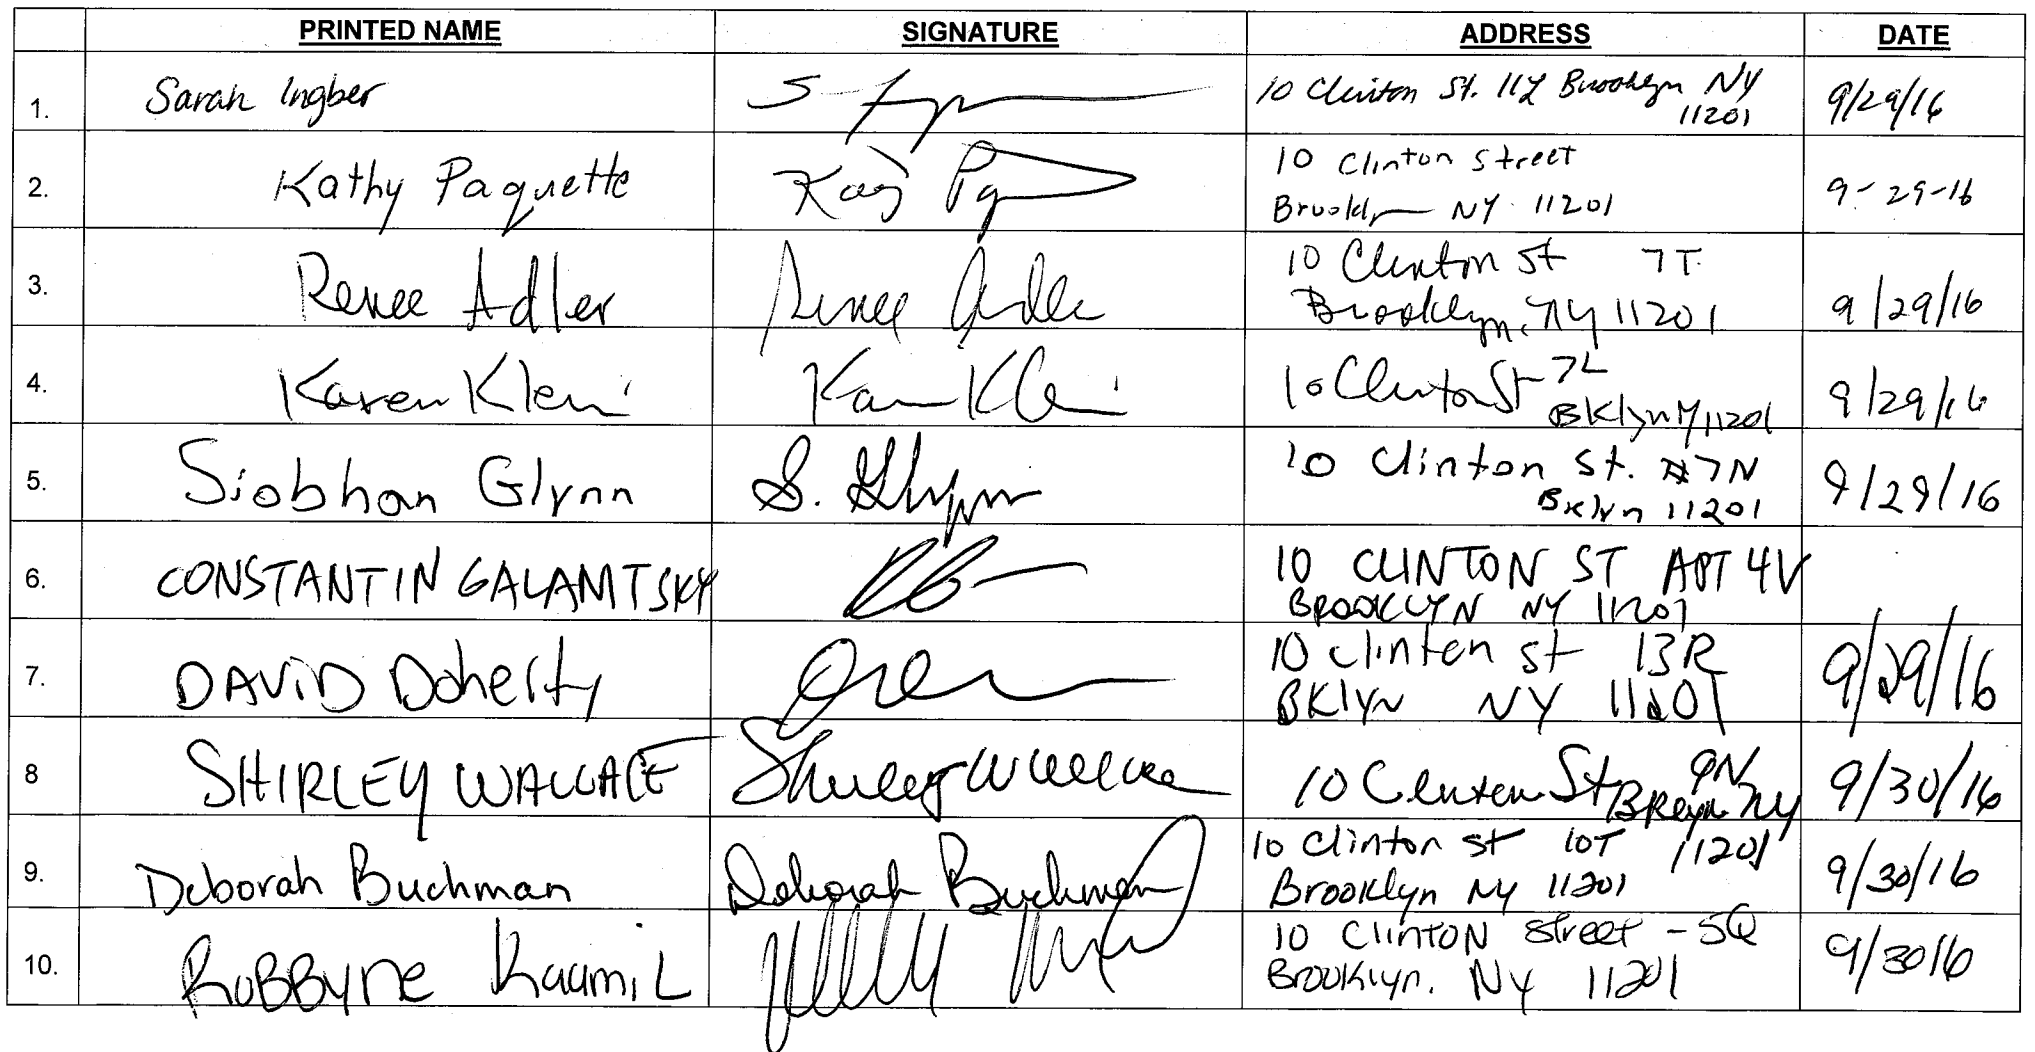 PRINTED NAME SIGNATURE ADDRESS DATE
1. Sarah Ingber S 10 Clinton St. 11L Brooklyn NY 9/29/16
11201
2. Kathy Paquette 10 Clinton Street 9-29-16
Brooklyn NY 11201
3. Renee Adler Renee Adler 10 Clinton St 7T 9/29/16
Brooklyn, NY 11201
4. Karen Klein Karen Klein 10 Clinton St 7L 9/29/16
BKlyn NY 11201
5. Siobhan Glynn S. Glynn 10 Clinton St. #7N 9/29/16
Bklyn 11201
6. CONSTANTIN GALAMTSKY 10 CLINTON ST APT 4V
BROOKLYN NY 11201
7. DAVID Doherty 10 clinton st 13R 9/29/16
BKlyn NY 11201
8 SHIRLEY WALLACE Shirley Wallace 10 Clinton St 9N 9/30/16
BKlyn NY
11201
9. Deborah Buchman Deborah Buchman 10 Clinton st 10T 9/30/16
Brooklyn NY 11201
10. RoBByne Kaamil 10 Clinton Street - 5Q 9/3016
Brooklyn. NY 11201